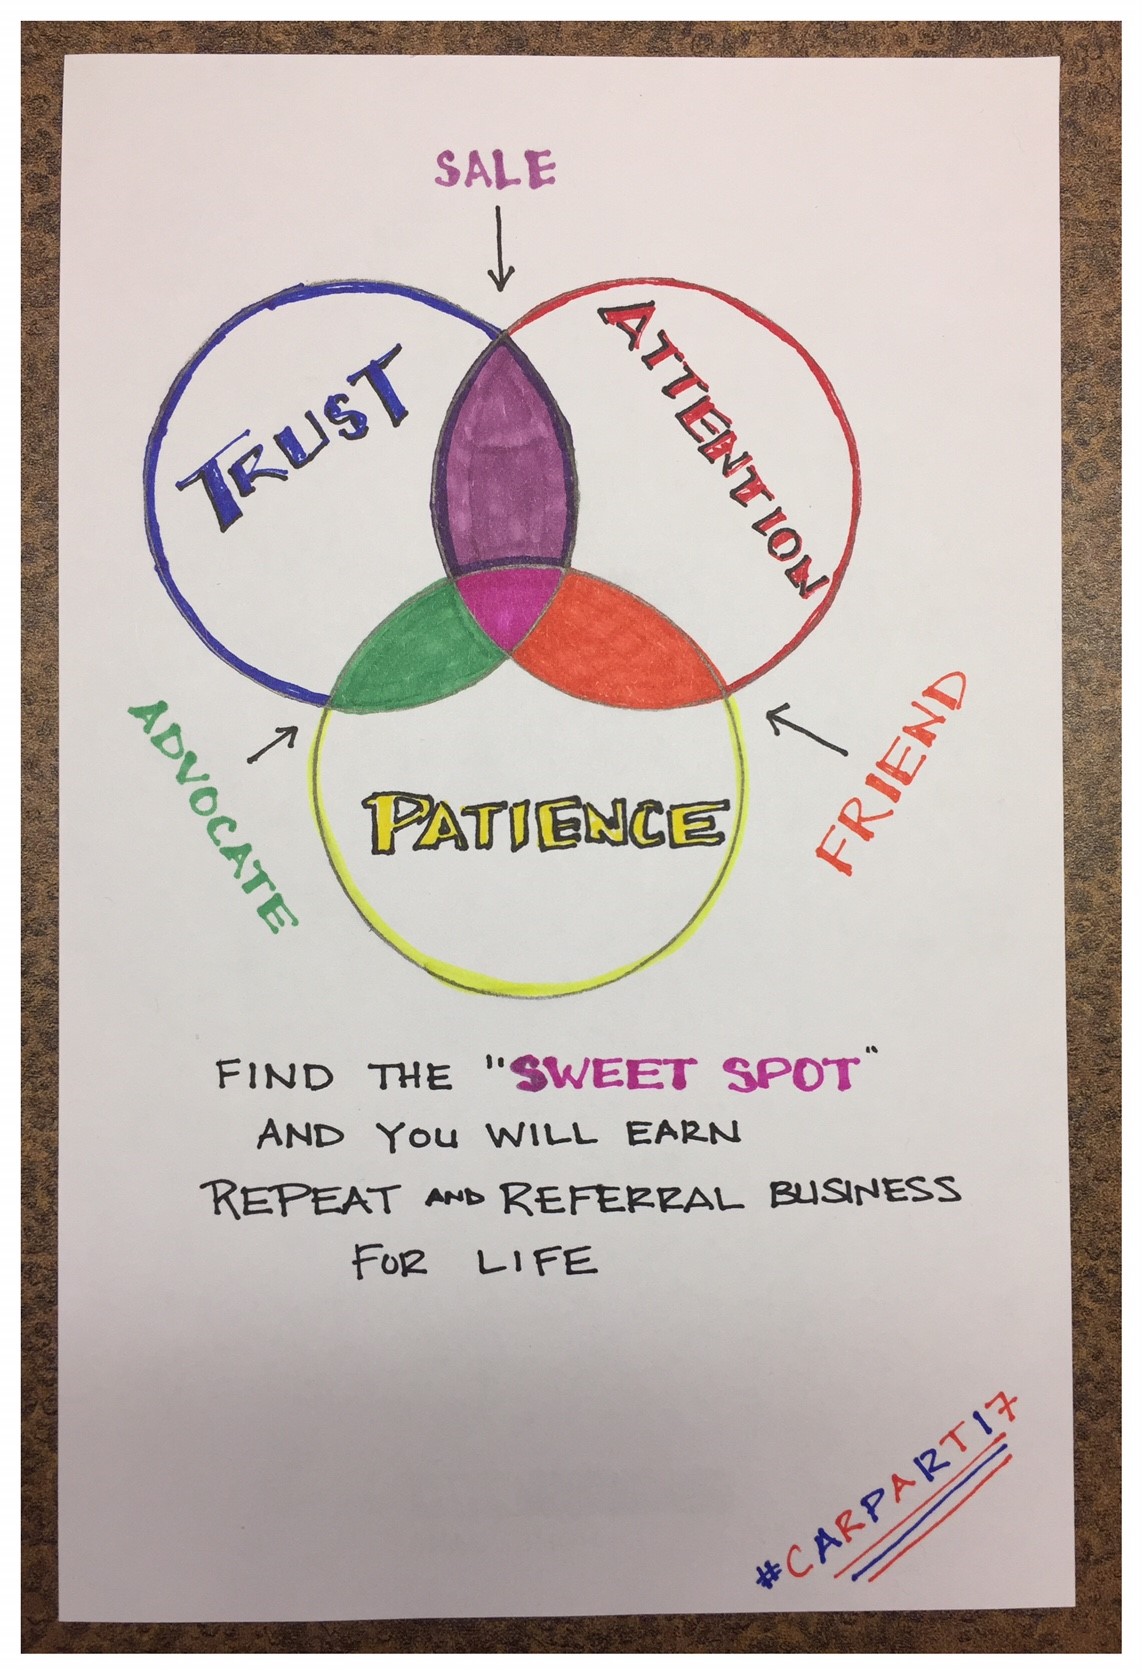 SALE
TRUST
ATTENTION
ADVOCATE
FRIEND
PATIENCE
FIND THE "SWEET SPOT"
AND YOU WILL EARN
REPEAT AND REFERRAL BUSINESS
FOR LIFE
#CARPART17